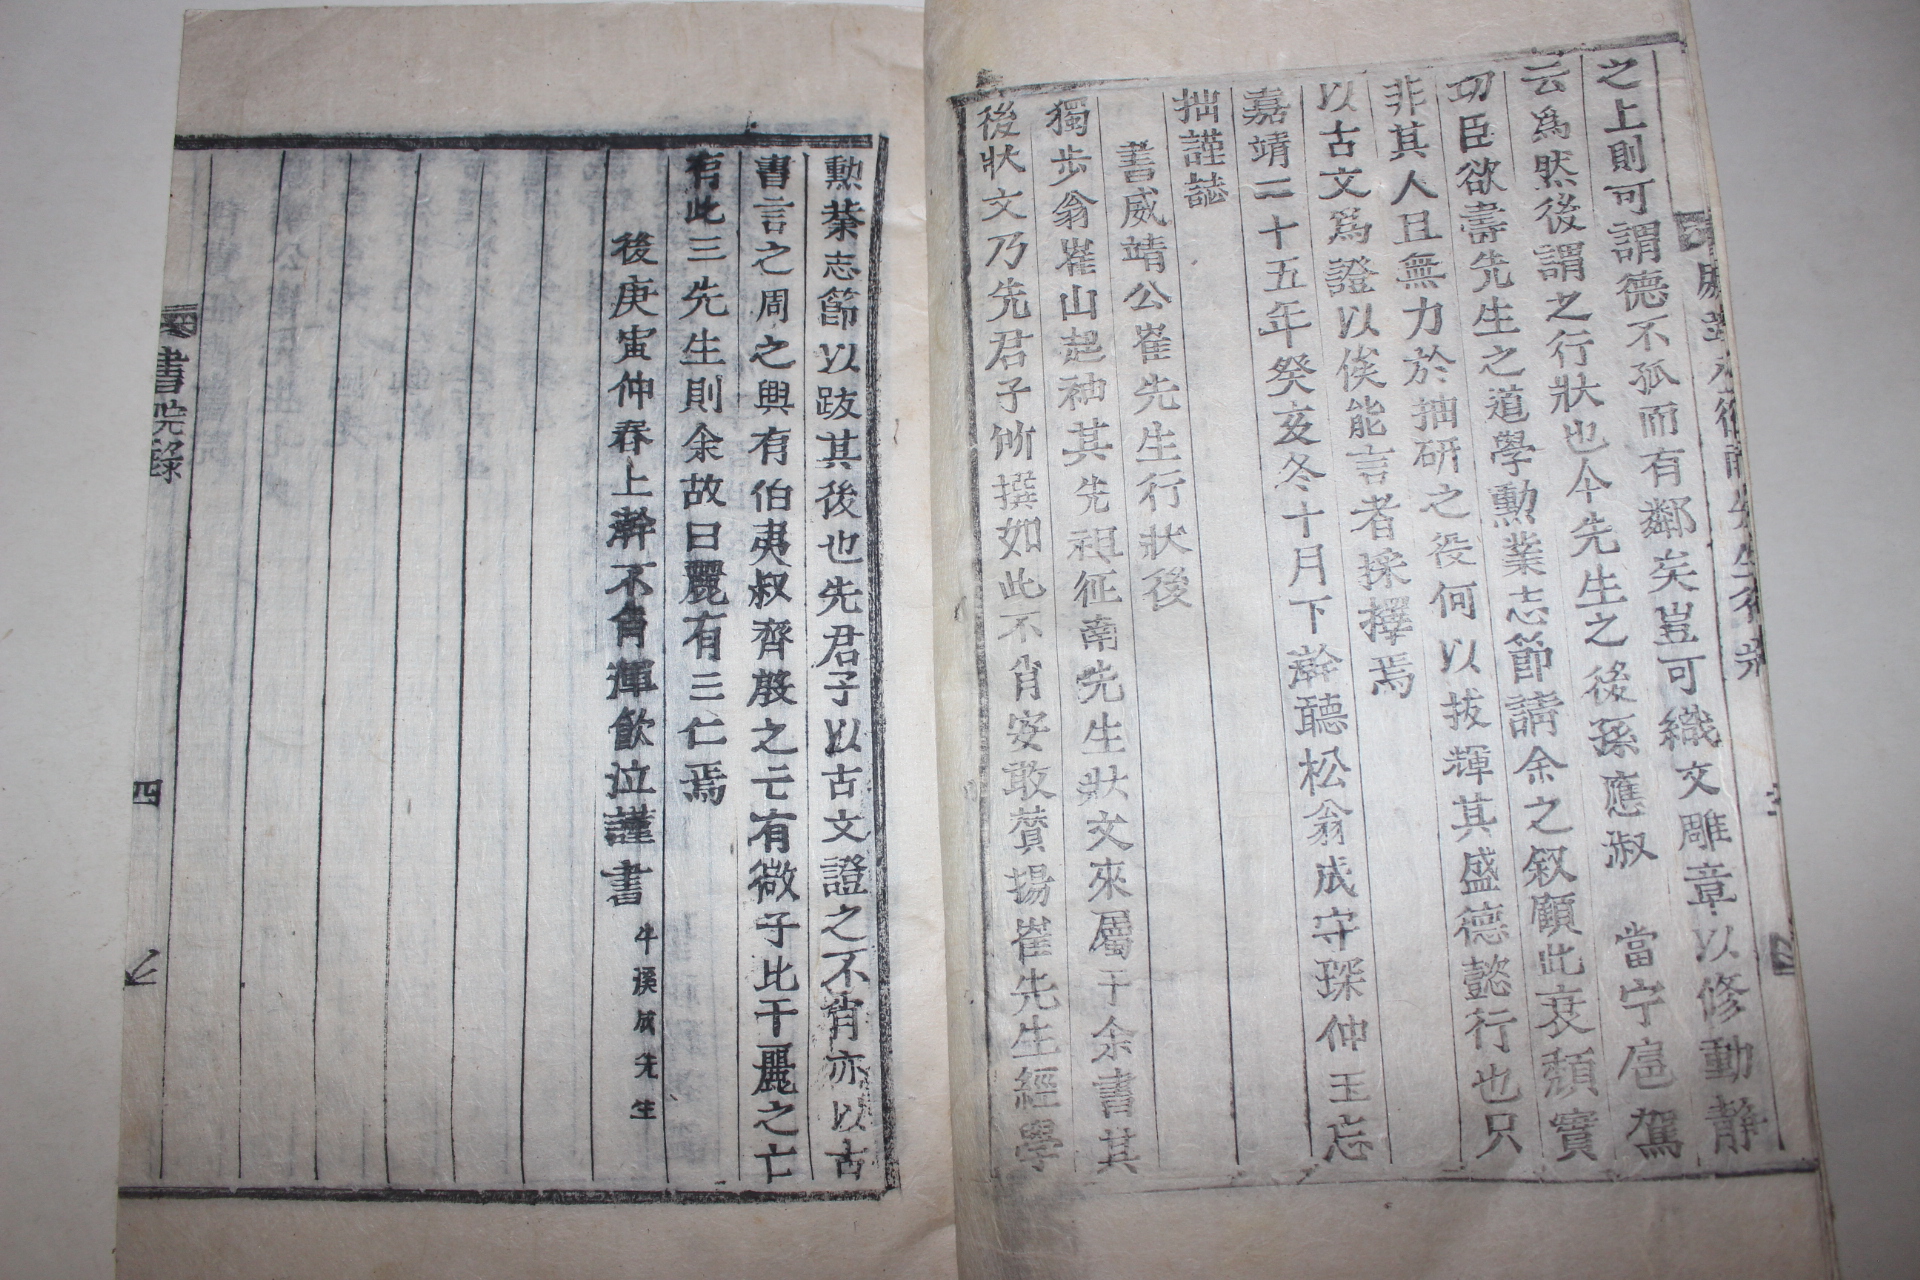 之上則可謂德不孤而有鄰矣豈可織文雕章以修動靜
云爲然後謂之行狀也今先生之後孫應淑 當宁扈駕
功臣欲壽先生之道學勳業志節請余之叙顧此衰頹實
非其人且無力於抽研之役何以拔輝其盛德懿行也只
以古文爲證以俟能言者採擇焉
嘉靖二十五年癸亥冬十月下澣聽松翁成守琛仲玉忘
拙謹誌
書威靖公崔先生行狀後
獨步翁崔山起袖其先祖征南先生狀文來屬于余書其
後狀文乃先君子所撰如此不肖安敢贊揚崔先生經學
勳業志節以跋其後也先君子以古文證之不肖亦以古
書言之周之興有伯夷叔齊殷之亡有微子比干麗之亡
有此三先生則余故曰麗有三仁焉
後庚寅仲春上澣不肖渾飮泣謹書 牛溪成先生
書院錄
四